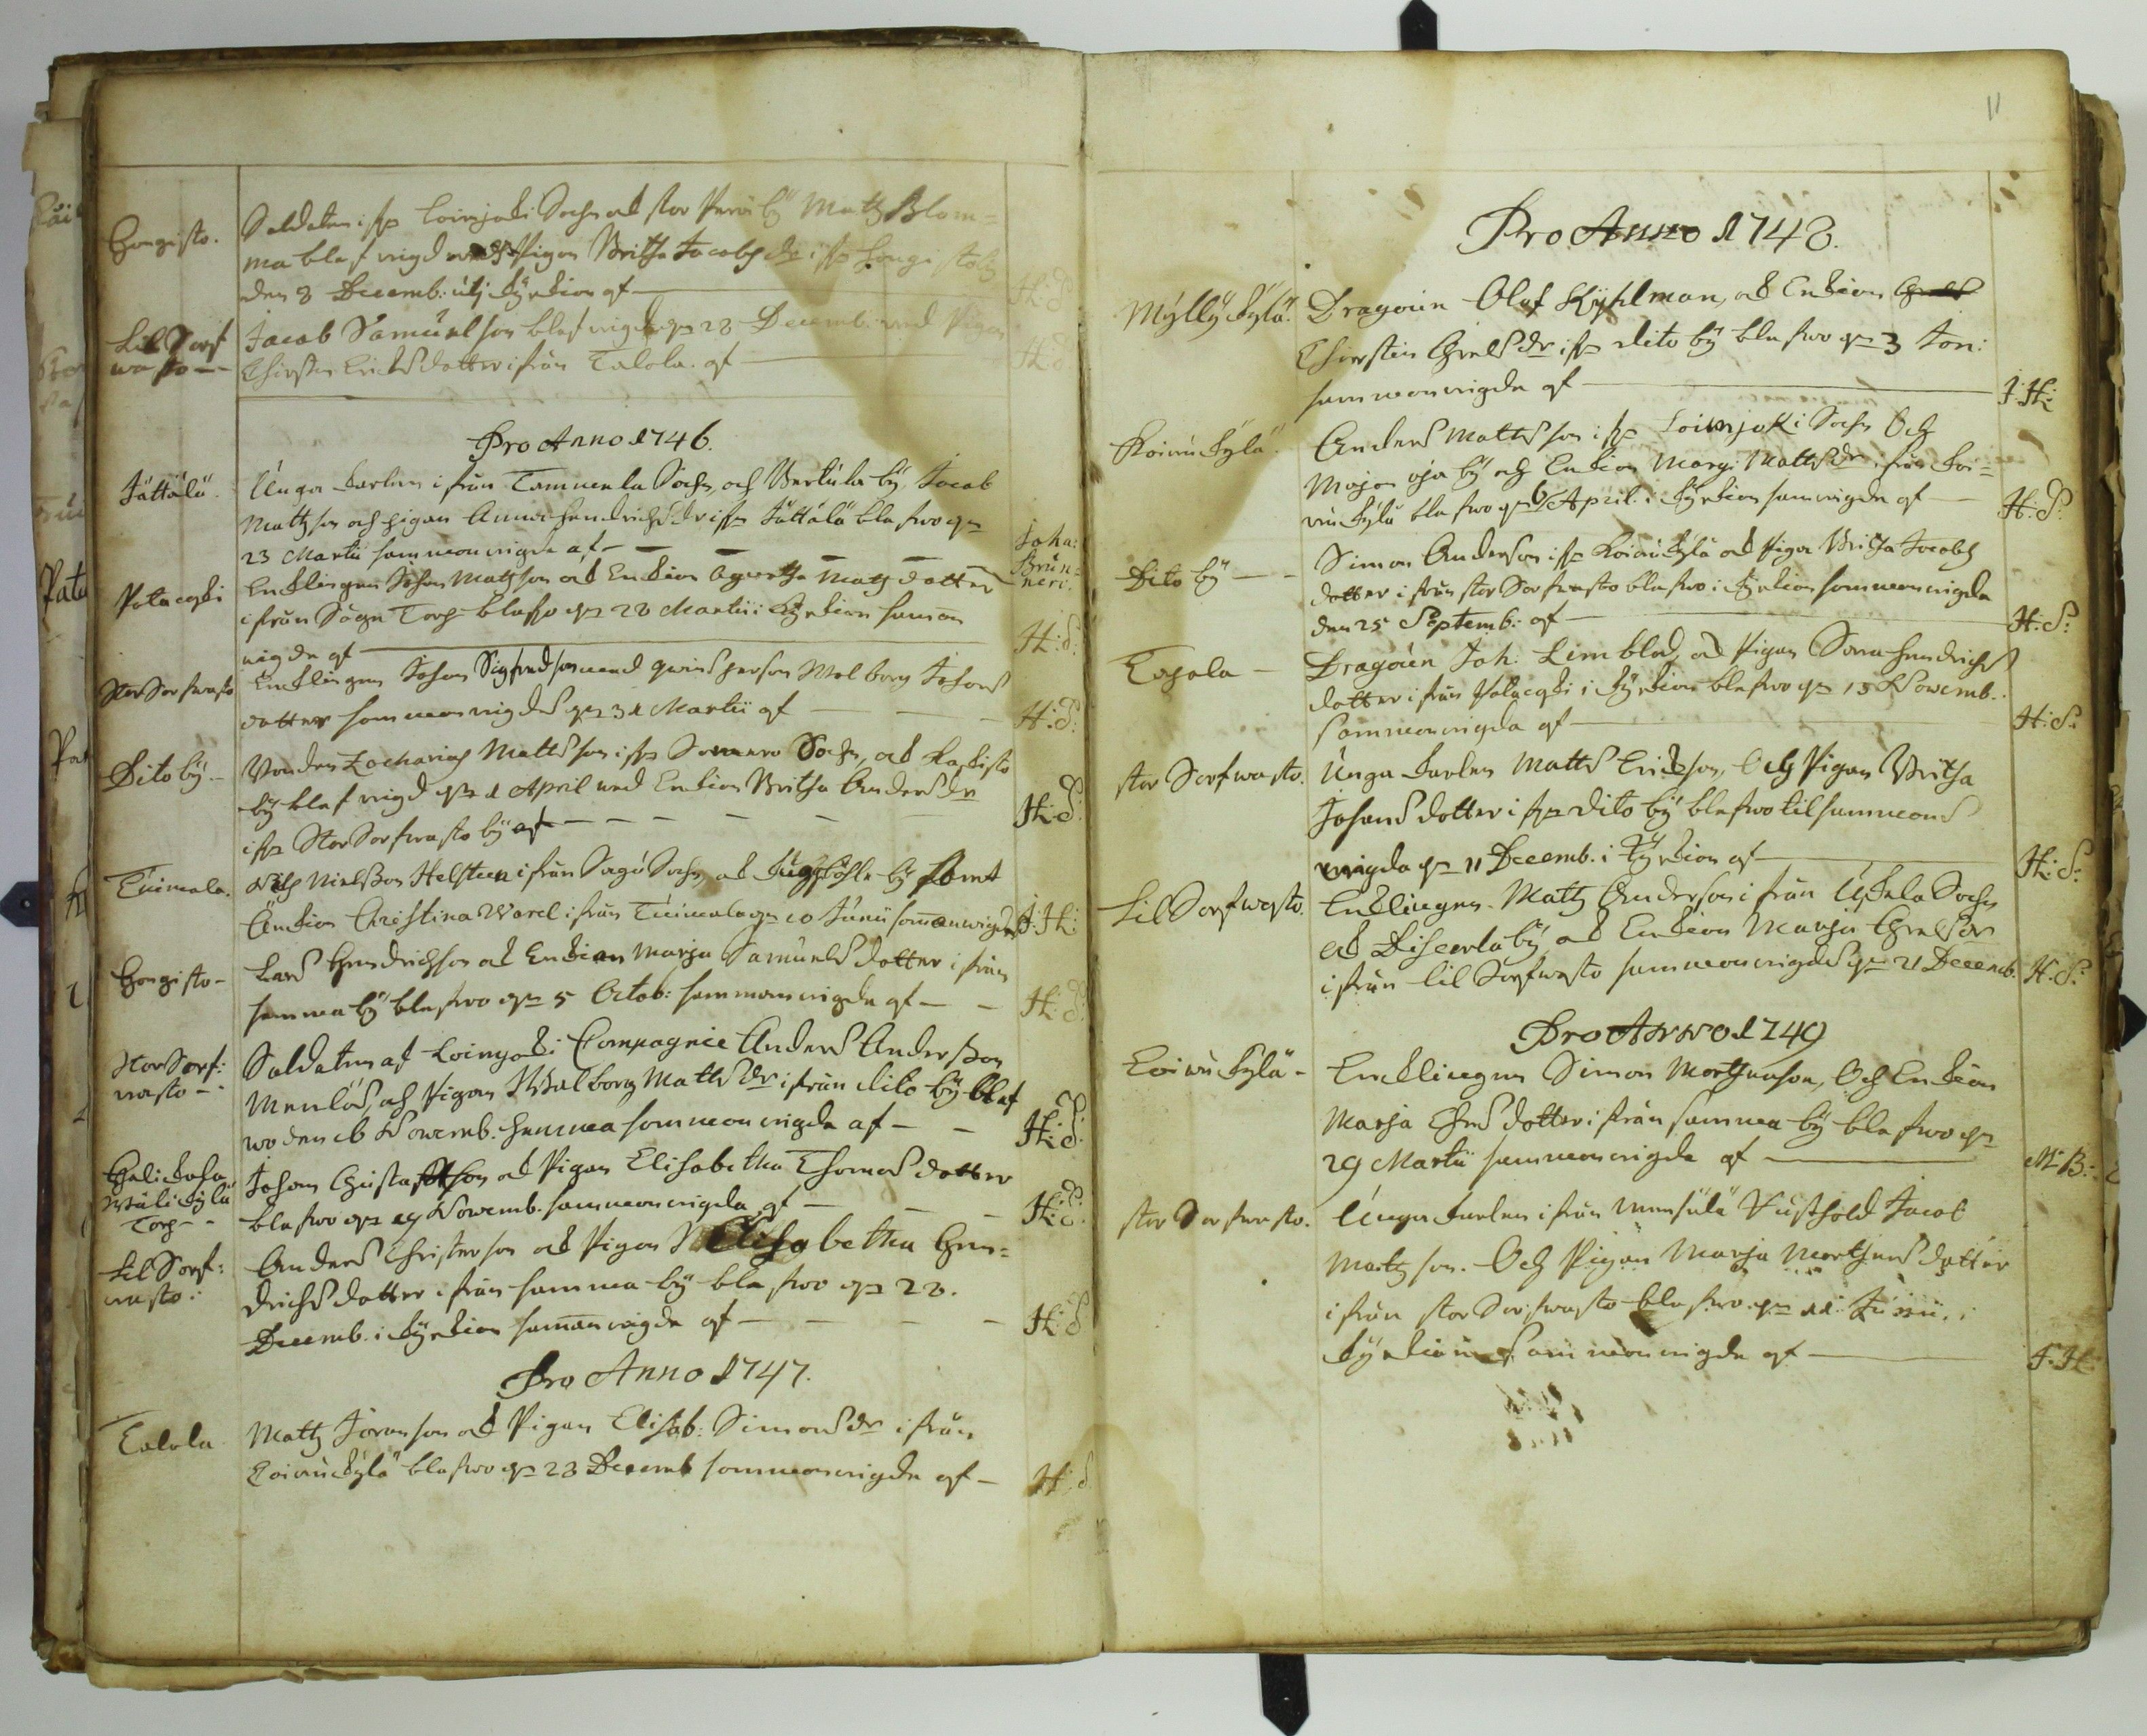 Hongisto. Soldaten ifr Loimjoki Sochn och stor Perä bÿ Matz Blom=
ma blef wigd med Pigan Britha Jacobs dr ifr Hongisto bÿ
den 8 Decemb: uti Kÿrkian af — H: S:
Lil Sorf Jacob Samuelson blef wigd d 28 Decemb. med Pigan
wasto — Chirstin Erichsdotter ifrån Talola af — H: S:
Pro Anno 1746.
Jättälä. Unga karlen ifrån Tammela Sochn, och Bertula bÿ Jacob
Mattzson och pigan Anna Hendrichs dr ifr Jättälä blefwo d
23 Martii sammanwigda af — Joha: Brun=nero.
Palacoski Encklingen Johan Matzson och Enckian Agnetha Matz dotter
ifrån Torp blefwo d 28 Martii i Kÿrkian samman
wigda af — H: S:
Stor Sorfwasto Encklingen Johan Sigfredson med qwinsperson Walborg Johans
dotter sammanwigdes d 31 Martii af — H: S:
Dito bÿ — Bonden Zacharias Matts son ifr Somero Sochn, och Kaskisto
bÿ blef wigd d 1 April med Enckian Britha Anders dr
ifr Stor Sorfwasto bÿ af — H: S:
Tuimala. Nils Nielsson Helsteen ifrån Sagu Sochn, och bÿ samt
Änckian Christina Warel ifrån Tuimala d 10 Junii sammanwigde J: H:
Hongisto — Lars Hendrichson och Enckian Marja Samuels dotter ifrån
samma bÿ blefwo d 5 Octob: sammanwigda af — H: S:
Stor Sorf: Soldaten af Loimjoki Compagnie Anders Andersson
wasto — Menlös, och Pigan Walborg Matts dr ifrån dito bÿ blef
wo den 16 Nowemb. hemma sammanwigda af — H: S:
Johan Gustafsson och Pigan Elisabetha Thomas dotter
Torp — blefwo d 19 Nowemb. sammanwigda af — H: S:
Lil Sorf: Anders Christerson och Pigan Elisabetha Hen=
wasto: drichs dotter ifrån samma bÿ blefwo d 28.
Decemb. i Kÿrkian samman wigda af — H: S:
Pro Anno 1747.
Talola Mattz Jöranson och Pigan Elisab: Simons dr ifrån
Koiwukÿlä blefwo d 23 Decemb sammanwigda af — H: S:
11
Pro Anno 1748.
Mÿllÿkÿlä. Dragoun Olof Kÿhlman, och Enckian
Chirstin Grels dr ifr dito bÿ blefwo d 3 Jan:
sammanwigda af — J: H:
Koiwukÿlä. Anders Mattsson ifr Loimjoki Sochn Och
Majan oja bÿ och Enckian Marg: Matts dr ifrån Koi=
wukÿlä blefwo d 6 April i Kÿrkian samwigda af — H: S:
Dito bÿ — Simon Anderson ifr Koiwukÿlä och Pigan Britha Jacobs
dotter ifrån stor Sorfwasto blefwo i Kÿrkian sammanwigda
den 25 Septemb: af — H: S:
Talola — Dragoun Joh: Limblad, och Pigan Sara Hendrichs
dotter ifrån Palacoski i Kÿrkian blefwo d 13 Nowemb.
sammanwigda af — H: S:
stor Sorfwasto. Unga karlen Matts Erickson, Och Pigan Britha
Johans dotter ifr dito bÿ blefwo tilsammans
wigda d 11 Decemb. i Kÿrkian af — H: S:
Lil Sorfwasto. Encklingen Matz Anderson ifrån Uskela Sochn
och bÿ, och Enckian Marja Grels dr
ifrån lil Sorfwasto sammanwigdes d 21 Decemb. H: S:
Pro Anno 1749
Koiwukÿlä — Encklingen Simon Morthenson, Och Enckian
Marja dotter ifrån samma bÿ blefwo d
29 Martii sammanwigda af — M: B:
stor Sorfwasto. Unga karlen ifrån Rusthold Jacob
Matzson. Och Pigan Marja Morthens dotter
ifrån stor Sorfwasto blefwo d 11 Junii. i
Kÿrkian Sammanwigda af — J. H: